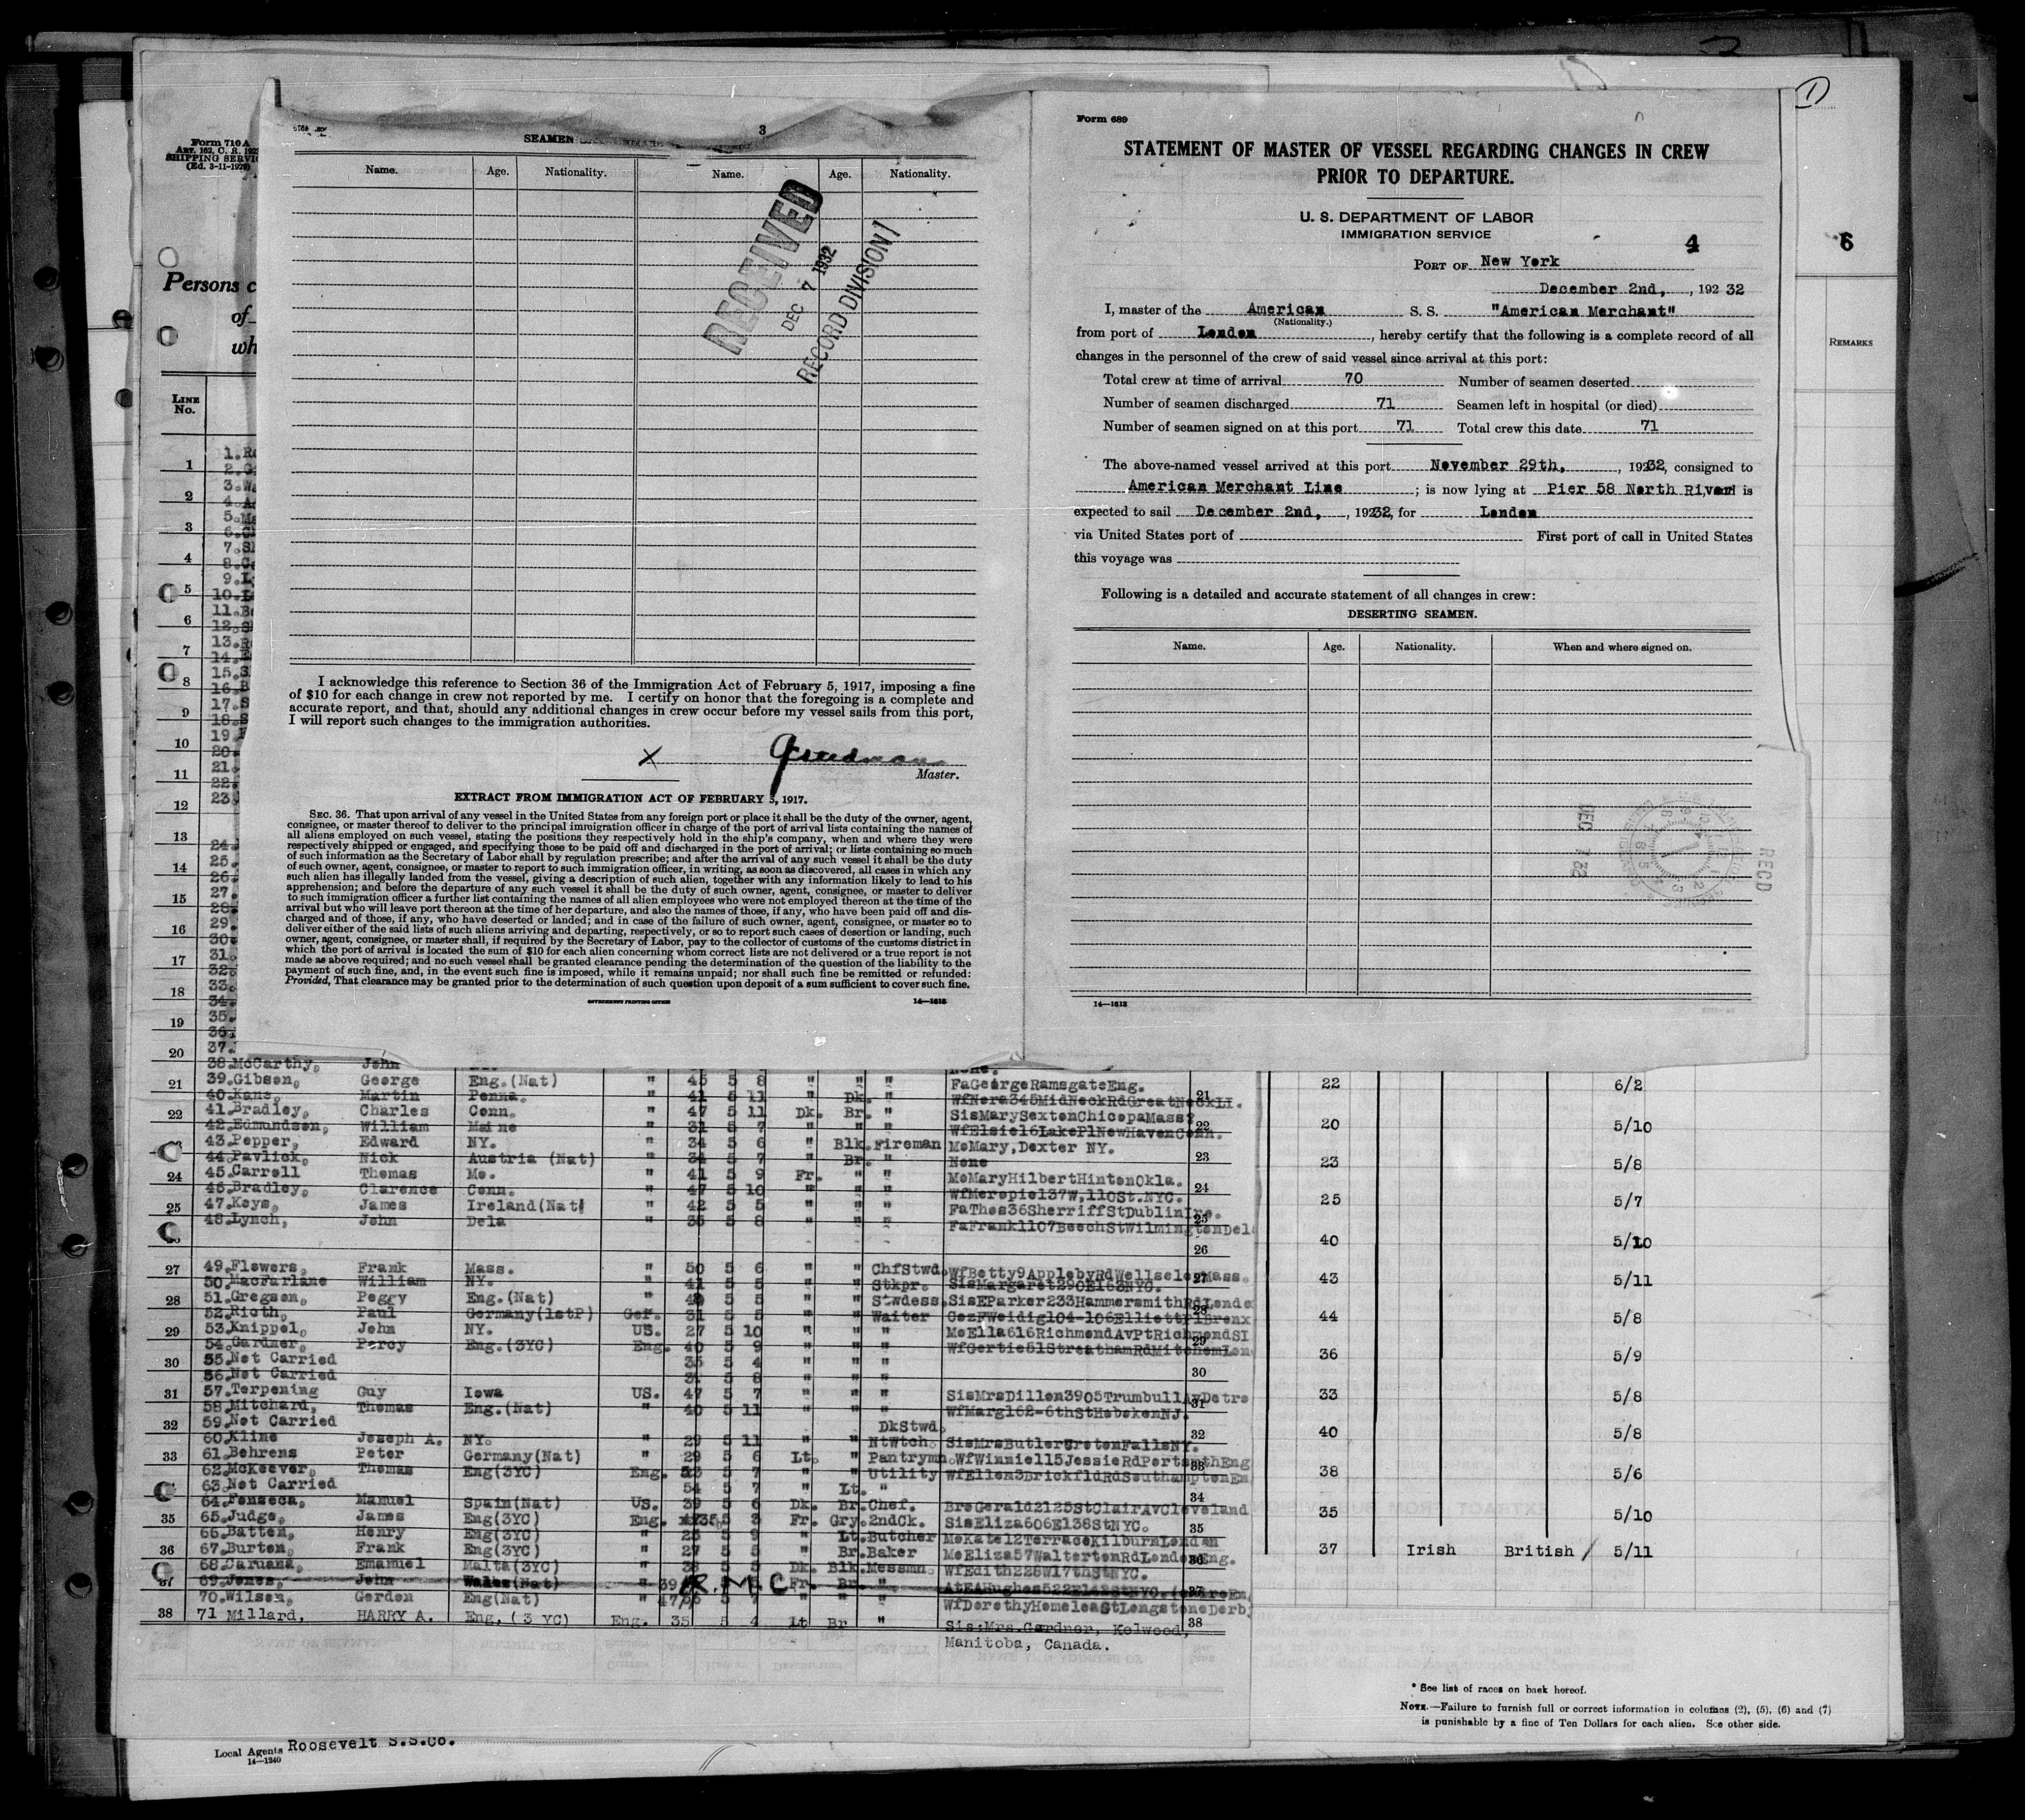 Form 710 A
ART. 162, C. R. 192
SHIPPING SERVIC
(Ed. 3-11-1929)
Persons c
of
wh
LINE No.
3
SEAMEN
Name. Age. Nationality. Name. Age. Nationality.
RECEIVED
DEC 7 1932
RECORD DIVISION
I acknowledge this reference to Section 36 of the Immigration Act of February 5, 1917, imposing a fine
of $10 for each change in crew not reported by me. I certify on honor that the foregoing is a complete and
accurate report, and that, should any additional changes in crew occur before my vessel sails from this port,
I will report such changes to the immigration authorities.
X
Master.
EXTRACT FROM IMMIGRATION ACT OF FEBRUARY 5, 1917.
SEC. 36. That upon arrival of any vessel in the United States from any foreign port or place it shall be the duty of the owner, agent,
consignee, or master thereof to deliver to the principal immigration officer in charge of the port of arrival lists containing the names of
all aliens employed on such vessel, stating the positions they respectively hold in the ship's company, when and where they were
respectively shipped or engaged, and specifying those to be paid off and discharged in the port of arrival; or lists containing so much
of such information as the Secretary of Labor shall by regulation prescribe; and after the arrival of any such vessel it shall be the duty
of such owner, agent, consignee, or master to report to such immigration officer, in writing, as soon as discovered, all cases in which any
such alien has illegally landed from the vessel, giving a description of such alien, together with any information likely to lead to his
apprehension; and before the departure of any such vessel it shall be the duty of such owner, agent, consignee, or master to deliver
to such immigration officer a further list containing the names of all alien employees who were not employed thereon at the time of the
arrival but who will leave port thereon at the time of her departure, and also the names of those, if any, who have been paid off and dis-
charged and of those, if any, who have deserted or landed; and in case of the failure of such owner, agent, consignee, or master so to
deliver either of the said lists of such aliens arriving and departing, respectively, or so to report such cases of desertion or landing, such
owner, agent, consignee, or master shall, if required by the Secretary of Labor, pay to the collector of customs of the customs district in
which the port of arrival is located the sum of $10 for each alien concerning whom correct lists are not delivered or a true report is not
made as above required; and no such vessel shall be granted clearance pending the determination of the question of the liability to the
payment of such fine, and, in the event such fine is imposed, while it remains unpaid; nor shall such fine be remitted or refunded:
Provided, That clearance may be granted prior to the determination of such question upon deposit of a sum sufficient to cover such fine.
GOVERNMENT PRINTING OFFICE 14—1613
1
Form 689
STATEMENT OF MASTER OF VESSEL REGARDING CHANGES IN CREW
PRIOR TO DEPARTURE.
U. S. DEPARTMENT OF LABOR
IMMIGRATION SERVICE
4
6
PORT OF New York
December 2nd, , 192 32
I, master of the American S. S. "American Merchant"
(Nationality.)
from port of London, hereby certify that the following is a complete record of all
changes in the personnel of the crew of said vessel since arrival at this port:
Total crew at time of arrival 70 Number of seamen deserted
Number of seamen discharged 71 Seamen left in hospital (or died)
Number of seamen signed on at this port 71 Total crew this date 71
The above-named vessel arrived at this port November 29th, , 19232, consigned to
American Merchant Line ; is now lying at Pier 58 North River, and is
expected to sail December 2nd, , 19232, for London
via United States port of First port of call in United States
this voyage was
Following is a detailed and accurate statement of all changes in crew:
DESERTING SEAMEN.
Name. Age. Nationality. When and where signed on.
RECD
DEC 1 '32
14—1613
REMARKS
38. McCarthy, John
None.
39. Gibson, George Eng. (Nat) " 45 5 8 " " " FaGeorgeRamsgateEng.
40. Kane, Martin Penna. " 41 5 11 " Dk. " WfNora345MidNeckRdGreatNeckLI.
41. Bradley, Charles Conn. " 47 5 11 Dk. Br. " SisMarySextonChicopaMass?
42. Edmundson, William Maine " 31 5 7 " " " WfElsie16LakePlNewHavenConn.
43. Pepper, Edward NY. " 34 5 6 " Blk. Fireman MoMary, Dexter NY.
44. Pavlick, Nick Austria (Nat) " 34 5 7 " Br. " None
45. Carroll Thomas Mo. " 41 5 9 Fr. " " MoMaryHilbertHintonOkla.
46. Bradley, Clarence Conn. " 47 5 10 " " " WfMeropie137W,110St.NYC.
47. Keys, James Ireland(Nat) " 42 5 5 " " " FaThos36SherriffStDublinIre.
48. Lynch, John Dela " 35 5 8 " " " FaFrank1107BeechStWilmingtonDel
49. Flowers, Frank Mass. " 50 5 6 " " ChfStwd. WfBetty9ApplebyRdWellselesMass.
50. MacFarlane William NY. " 41 5 5 " " Stkpr. SisMargaret290E163NYC.
51. Gregson, Peggy Eng.(Nat) " 48 5 5 " " Stwdess. SisEParker233HammersmithRdLondo
52. Rieth, Paul Germany(1stP) Ger. 31 5 5 " " Waiter CozFWeidig104-106ElliottPlBronx
53. Knippel, John NY. US. 27 5 10 " " " MoElla616RichmondAvPtRichmondSI
54. Gardner, Percy Eng.(3YC) Eng. 40 5 9 " " " WfGertie51StreathamRdMitchemLon
55. Not Carried 35 5 4 " " "
56. Not Carried 5 8 " " "
57. Terpening Guy Iowa US. 47 5 7 " " " SisMrsDillon3905TrumbullAvDetro
58. Mitchard, Thomas Eng.(Nat) " 40 5 11 " " " WfMarg162-6thStHobokenNJ.
59. Not Carried DkStwd.
60. Kline Joseph A. NY. " 29 5 11 " " NtWtch. SisMrsButlerCrotonFallsNY.
61. Behrens Peter Germany(Nat) " 29 5 6 Lt. " Pantrymn. WfWinnie115JessieRdPortsmthEng
62. McKeever, Thomas Eng(3YC) Eng. 5 7 " " Utility WfEllen3BrickfldRdSouthamptonEn
63. Not Carried 54 5 7 " Lt. "
64. Fonseca, Manuel Spain(Nat) US. 39 5 6 Dk. Br. Chef. BroGerald2125StClairAvCleveland
65. Judge, James Eng(3YC) Eng. 5 3 Fr. Gry. 2ndCk. SisEliza606E138StNYC.
66. Batten, Henry Eng(3YC) " 25 5 9 " Lt. Butcher MoKate12TerraceKilburnLondon
67. Burton, Frank Eng(3YC) " 27 5 5 " Br. Baker MoEliza57WaltertonRdLondonEng.
68. Caruana, Emanuel Malta(3YC) " 38 5 5 Dk. Blk. Messmn. WfEdith228W17thStNYC.
69. Jones, John Wales(Nat) " 39 R.M.C. Fr. Br. " AtEAHughes522E142StNYC.
70. Wilson, Gordon Eng(Nat) " 5 7 " " " WfDorothyHomeleaStLongstoneDerby
71 Millard, HARRY A. Eng. (3 YC) Eng. 35 5 4 Lt Br " Sis:Mrs.Gardner, Kelwood,
Manitoba, Canada.
22 6/2
20 5/10
23 5/8
25 5/7
40 5/10
43 5/11
44 5/8
36 5/9
33 5/8
40 5/8
38 5/6
35 5/10
37 Irish British / 5/11
* See list of races on back hereof.
NOTE.—Failure to furnish full or correct information in columns (2), (5), (6) and (7)
is punishable by a fine of Ten Dollars for each alien. See other side.
Local Agents Roosevelt S.S.Co.
14—1240